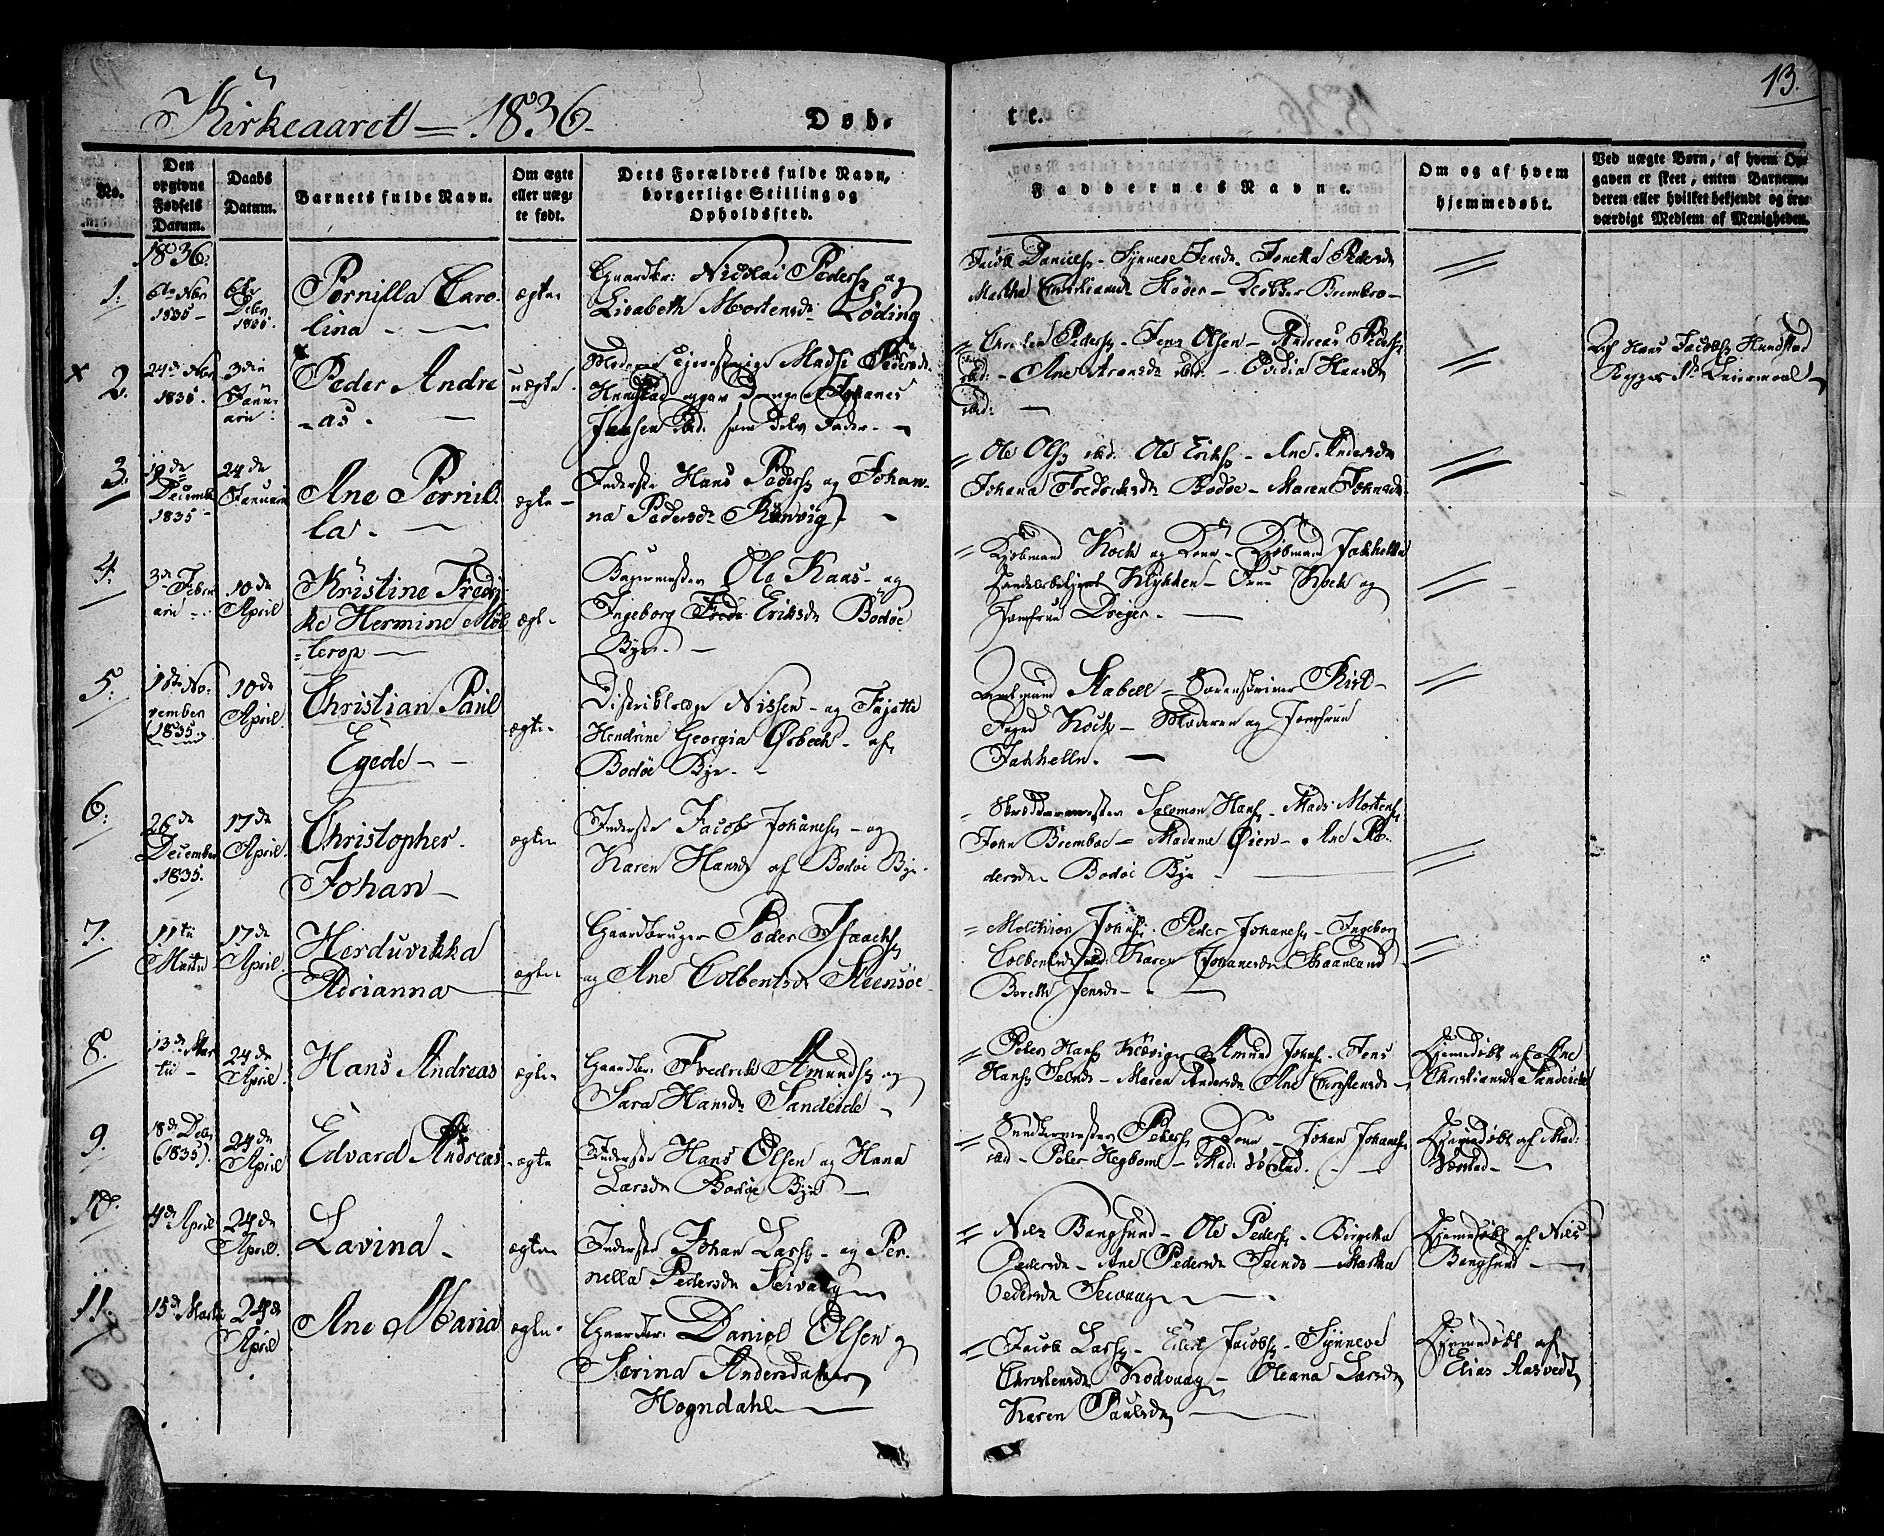 13.
Kirkeaaret — 1836.
Døb- te.
No.
Den opgivne Fødsels Datum.
Daabs Datum.
Barnets fulde Navn.
Om ægte eller uægte født.
Dets Forældres fulde Navn, borgerlige Stilling og Opholdssted.
Faddernes Navne.
Om og af hvem hjemmedøbt.
Ved uægte Børn, af hvem Opgaven er skeet, enten Barnemoderen eller hvilket bekjendt og troværdigt Medlem af Menigheden.
1836.
1.
6te Nbr 1835
6te Debr 1835.
Pernilla Caro-
lina
ægte
Gaardbr: Nicolai Peders. og
Lisabeth Mortensdr Løding
Jacob Daniels. - Synneve Jensdr
Martha
2.
24de Nbr 1835.
3die Januarii
Peder Andre
-as.
uægte
Hundstad
Johanes
Jensen ibd. som Fader
Peders. - Jens Olsen - Andreas Peders.
ibd: - Ane ibd: - Hansdr
ibd:
Af Hans Jacobs. Hundstad
3.
19de December 1835
24de Januarii
Ane Pernil-
la.
ægte
Inderste Hans Peders. og Johan-
na Pedersdr Rønvig
Ole Ols. ibd. Ole Eriks. - Ane Andersdr
Johana Fredriksdr Bodøe - Maren Johnsdr
4.
3de Febru arii
10de April
Kristine Fredri-
ke Hermine Möl-
lerop
ægte
Bagermester Ole Kaas - og
Ingeborg Eriksdr Bodøe
Bye.
Kjøbmand Koch og Kone - Kjøbmand Jakhelln
Handelsbetjent - Frue Koch og
Jomfrue Dreyer.
5.
1ste November (1835.)
10de April
Christian Paul
Egede
ægte
Distriktslæge Nissen - og Fajette
Hendrine Georgia Ørbech - af
Bodøe Bye.
Amtmand Stabell - Sorenskriver
Foged Koch - Moderen og Jomfrue
Jakhelln.
6.
26de December 1835.
17de April
Christopher
Johan
ægte
Inderste Jacob Johanes. - og
Karen Hansdr af Bodøe Bye.
Skræddermester Salomon Hans. - Mads Mortens.
John - Madame Øien - Ane Pe-
dersdr Bodøe Bye
7.
11te Martii
17de April
Herduvikka
Adrianna
ægte
Gaardbruger Peder Isaachs.
og Ane Colbentsdr Steensøe
Melchior Johns. Peder Johanes. - Ingeborg
Colbentsdr ibd: Karen Johanesdr Straanland
Bereth Jensdr
8.
13de Mar tii
24de April
Hans Andreas
ægte
Gaardbr. Fredrik Amunds. og
Sara Hansdr Sandeide
Peter Hans. Amund Johns. - Jens
Hans. - Maren Andersdr Ane Christensdr
Hjemedøbt af Ane
Christiansdr Sandeide
9.
18de Debr (1835).
24de April
Edvard Andreas
ægte
Inderste Hans Olsen og Hana
Larsdr Bodøe Bye
Peders. Kone - Johan Johanes.
ibd - Peter Hegbom - Mad:
Hjemedøbt af Mad:
10.
4de April
24de April
Lavina
ægte
Inderste Johan Lars. - og Per-
nella Pedersdr Seivaag
Niels Bangsund - Ole Peders. - Birgitha
Pedersdr - Ane Pedersdr - Martha
Pedersdr Seivaag
Hjemedøbt af Niels
Bangsund
11.
15de Martii
24de April
Ane Maria
ægte
Gaardbr. Daniel Olsen og
Serina Andersdatter
Hogndahl
Jacob Lars. - Eilert Jacobs. - Synneve
Christensdr Kodvaag - Oleana Larsdr
Karen Paulsdr
Hjemedøbt af
Elias Aasvedt